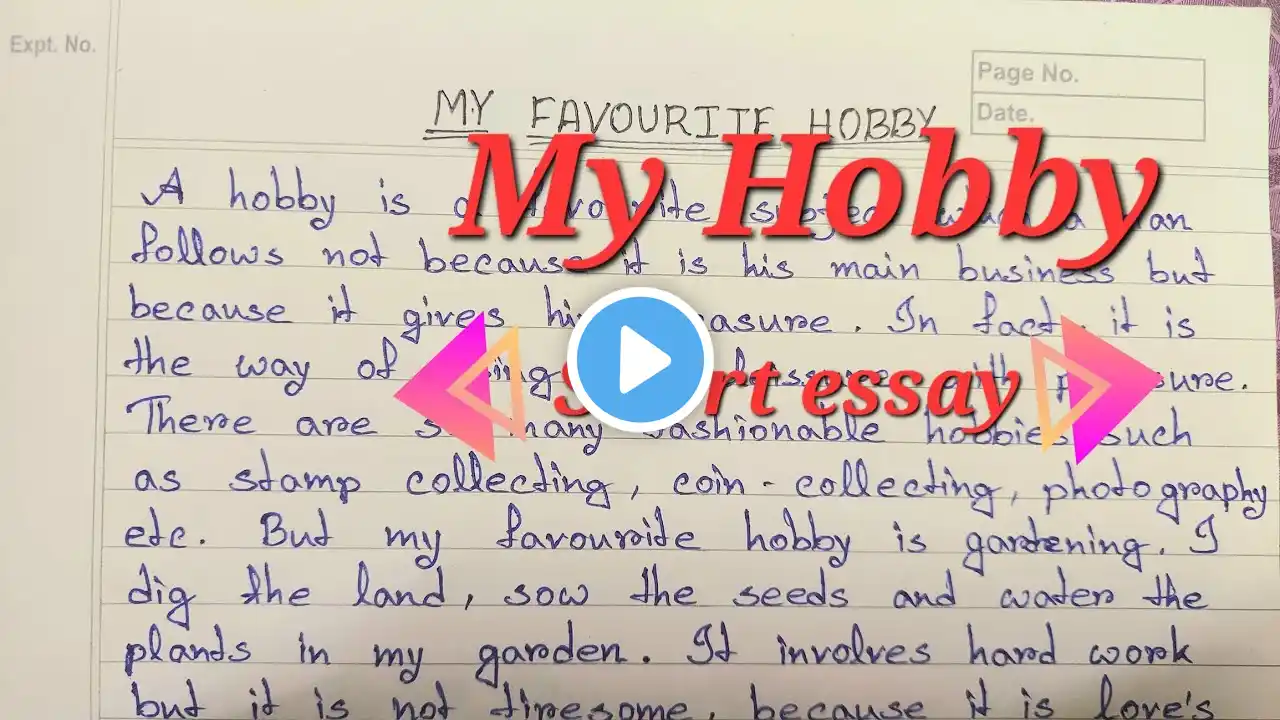 Expt. No.
Page No.
Date.
MY FAVOURITE HOBBY
My Hobby
A hobby is a favourite subject which a man
follows not because it is his main business but
because it gives him pleasure. In fact, it is
the way of leisure with pleasure.
Short essay
There are so many fashionable hobbies such
as stamp collecting, coin-collecting, photography
etc. But my favourite hobby is gardening. I
dig the land, sow the seeds and water the
plants in my garden. It involves hard work
but it is not tiresome, because it is love's